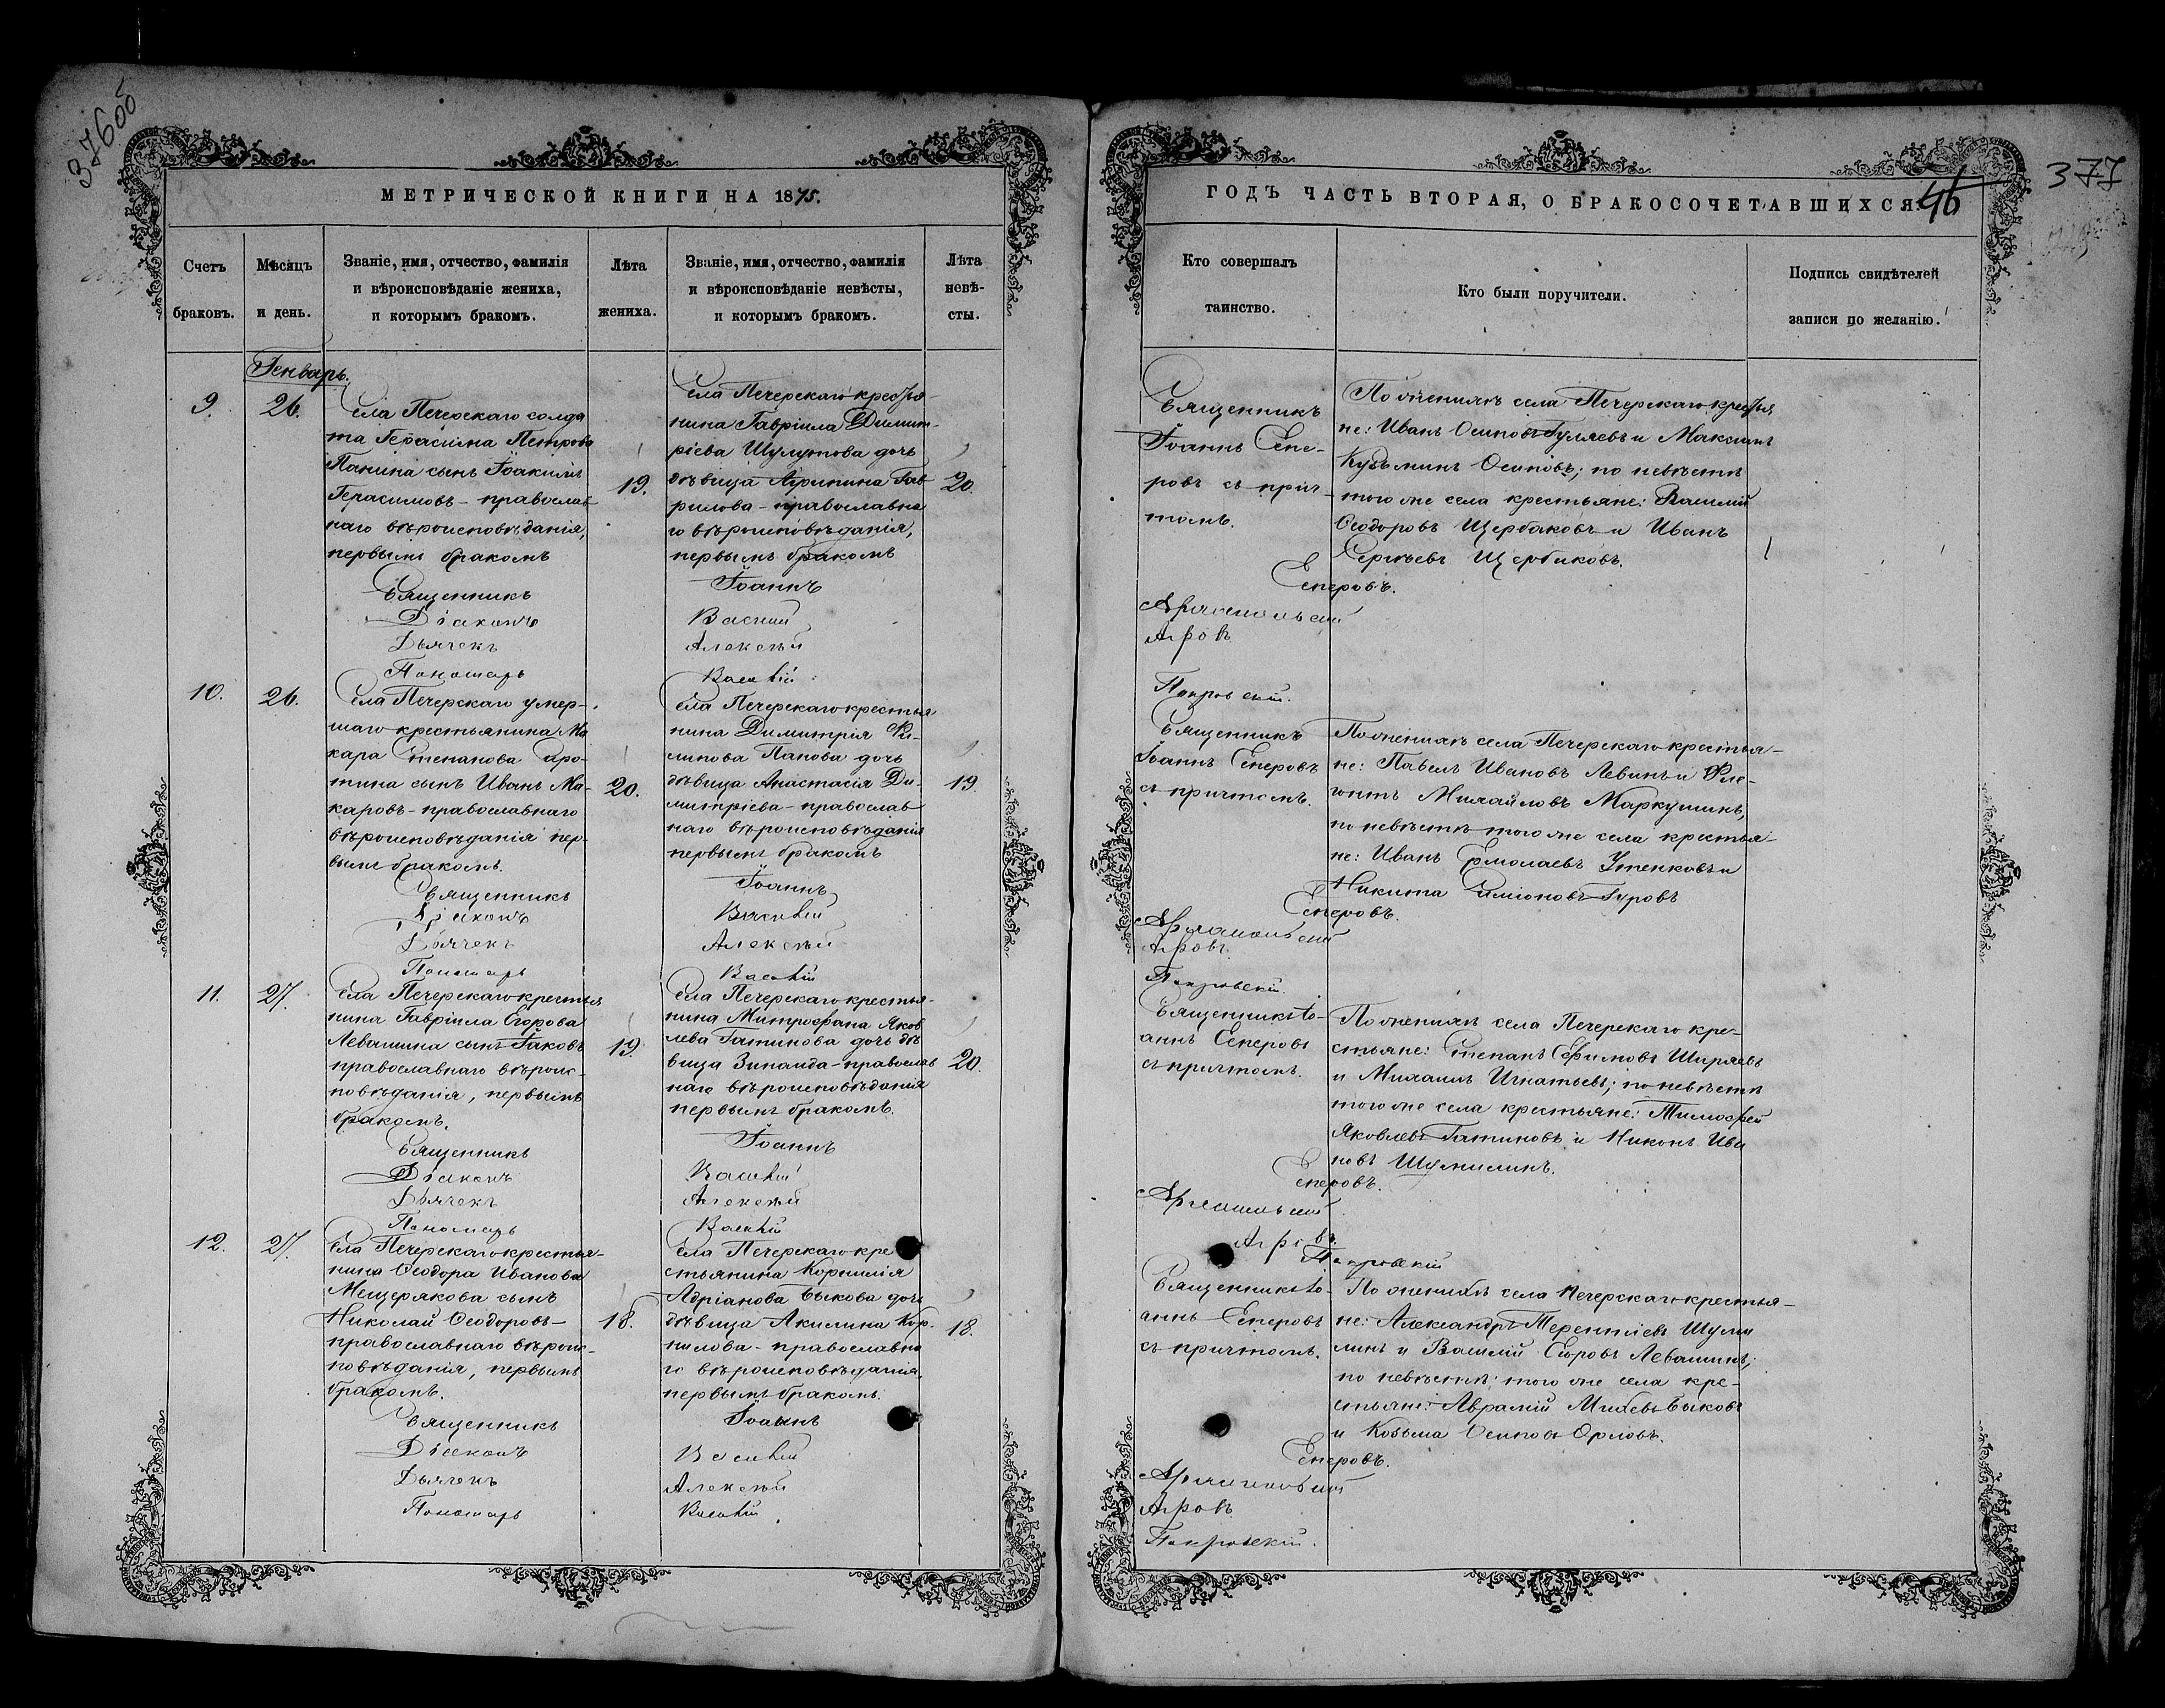 376об
МЕТРИЧЕСКОЙ КНИГИ НА 1875.
Счетъ
браковъ.
Мѣсяцъ
и день.
Званіе, имя, отчество, фамилія
и вѣроисповѣданіе жениха,
и которымъ бракомъ.
Лѣта
жениха.
Званіе, имя, отчество, фамилія
и вѣроисповѣданіе невѣсты,
и которымъ бракомъ.
Лѣта
невѣ-
сты.
Генварь.
9.
26.
Села Печерскаго солда
та Герасима Петрова
Панина сынъ Іоакимъ
Герасимовъ - православ
наго вѣроисповѣданія,
первымъ бракомъ
19.
Села Печерскаго крестья-
нина Гавріила Димит-
ріева Шулутова дочь
дѣвица Агрипина Гав
рилова - православна
го вѣроисповѣданія,
первымъ бракомъ
20.
Священникъ Іоаннъ
Діаконъ Василій
Дьячекъ Алексѣй
Пономарь Василій
10.
26.
Села Печерскаго умер-
шаго крестьянина Ма
кара Степанова
тина сынъ Иванъ Ма-
каровъ - православнаго
вѣроисповѣданія пер-
вымъ бракомъ.
20.
Села Печерскаго крестья
нина Димитрія Фи-
липова Панова дочь
дѣвица Анастасія Ди-
митріева - православ
наго вѣроисповѣданія
первымъ бракомъ
19.
Священникъ Іоаннъ
Діаконъ Василій
Дьячекъ Алексѣй
Пономарь Василій
11.
27.
Села Печерскаго крестья
нина Гавріила Егорова
Левашина сынъ Іаковъ
православнаго вѣроис-
повѣданія, первымъ
бракомъ.
19.
Села Печерскаго крестья-
нина Митрофана Яков
лева Гатинова дочь дѣ
вица Зинаида - православ
наго вѣроисповѣданія
первымъ бракомъ.
20.
Священникъ Іоаннъ
Діаконъ Василій
Дьячекъ Алексѣй
Пономарь Василій
12.
27.
Села Печерскаго крестья-
нина Ѳеодора Иванова
Мещерякова сынъ
Николай Ѳеодоровъ -
православнаго вѣроис-
повѣданія, первымъ
бракомъ.
18.
Села Печерскаго кре
стьянина Корнилія
Адріанова Быкова дочь
дѣвица Акилина Кор-
нилова - православна
го вѣроисповѣданія,
первымъ бракомъ.
18.
Священникъ Іоаннъ
Діаконъ Василій
Дьячекъ Алексѣй
Пономарь Василій
377
46
ГОДЪ ЧАСТЬ ВТОРАЯ, О БРАКОСОЧЕТАВШИХСЯ.
Кто совершалъ
таинство.
Кто были поручители.
Подпись свидѣтелей
записи по желанію.
Священникъ
Іоаннъ Сене-
ровъ съ прич-
томъ.
По женихѣ села Печерскаго крестья
не: Иванъ Осиповъ Гуляевъ и Максимъ
Кузьминъ Осиповъ; по невѣстѣ
того же села крестьяне: Василій
Ѳеодоровъ Щербаковъ и Иванъ
Сергѣевъ Щербаковъ.
Сенеровъ.
Агровъ
Покровскій.
Священникъ
Іоаннъ Сенеровъ
съ причтомъ.
По женихѣ села Печерскаго крестья-
не: Павелъ Ивановъ Левинъ и Фле-
гонтъ Михайловъ Маркушинъ,
по невѣстѣ того же села крестья-
не: Иванъ Ермолаевъ Утенковъ и
Никита Симіоновъ Гуровъ
Сенеровъ.
Агровъ.
Покровскій.
Священникъ Іо-
аннъ Сенеровъ
съ причтомъ.
По женихѣ села Печерскаго кре-
стьяне: Степанъ Ефимовъ Ширяевъ
и Михаилъ Игнатьевъ; по невѣстѣ
того же села крестьяне: Тимофей
Яковлевъ Гатиновъ и Никонъ Ива
новъ Шумилинъ.
Сенеровъ.
Агровъ.
Покровскій
Священникъ Іо-
аннъ Сенеровъ
съ причтомъ.
По женихѣ села Печерскаго крестья-
не: Александръ Терентіевъ Шуми
линъ и Василій Егоровъ Левашинъ;
по невѣстѣ: того же села кре-
стьяне: Аврамій Михѣевъ Быковъ
и Козьма Осиповъ Орловъ.
Сенеровъ.
Агровъ
Покровскій.